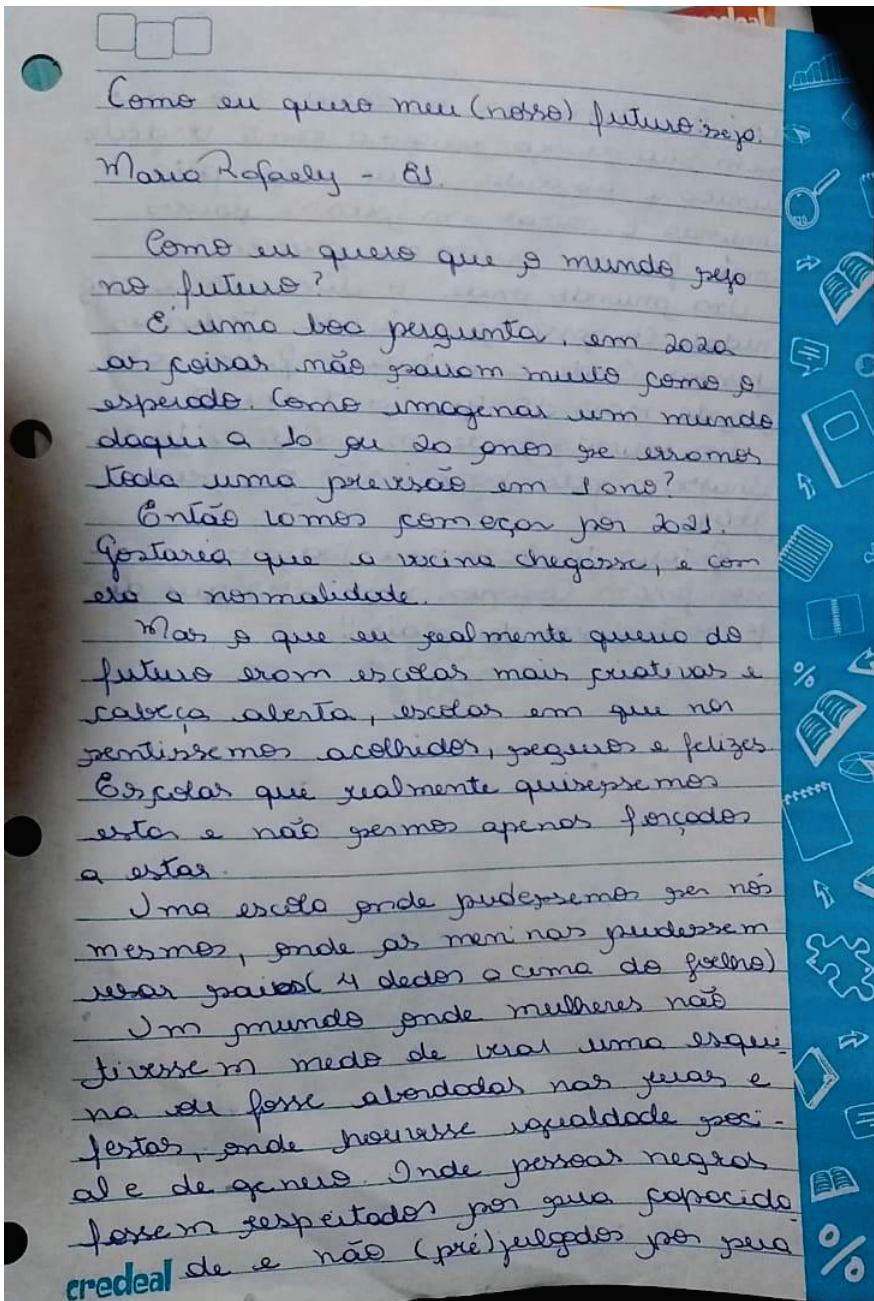 Como eu quero meu (nosso) futuro seja.
Maria Rafaely - 81.
Como eu quero que o mundo seja
no futuro?
É uma boa pergunta, em 2020
as coisas não sairom muito como o
esperado. Como imagenar um mundo
daqui a 10 ou 20 anos se erramos
toda uma previsão em 1 ano?
Então vamos começar por 2021.
Gostaria que a vacina chegasse, e com
ela a normalidade.
Mas o que eu realmente queria do
futuro eram escolas mais criativas e
cabeça aberta, escolas em que nos
sentissemos acolhidos, seguros e felizes.
Escolas que realmente quisessemos
estar e não sermos apenas forçados
a estar.
Uma escola onde pudessemos ser nós
mesmos, onde as meninas pudessem
usar saias (4 dedos acima do joelho)
Um mundo onde mulheres não
tivessem medo de virar uma esqui-
na ou fosse abordadas nas ruas e
festas, onde houvesse igualdade soci-
al e de genero. Onde pessoas negras
fossem respeitados por sua capacida
de e não (pré)julgados por sua
credeal